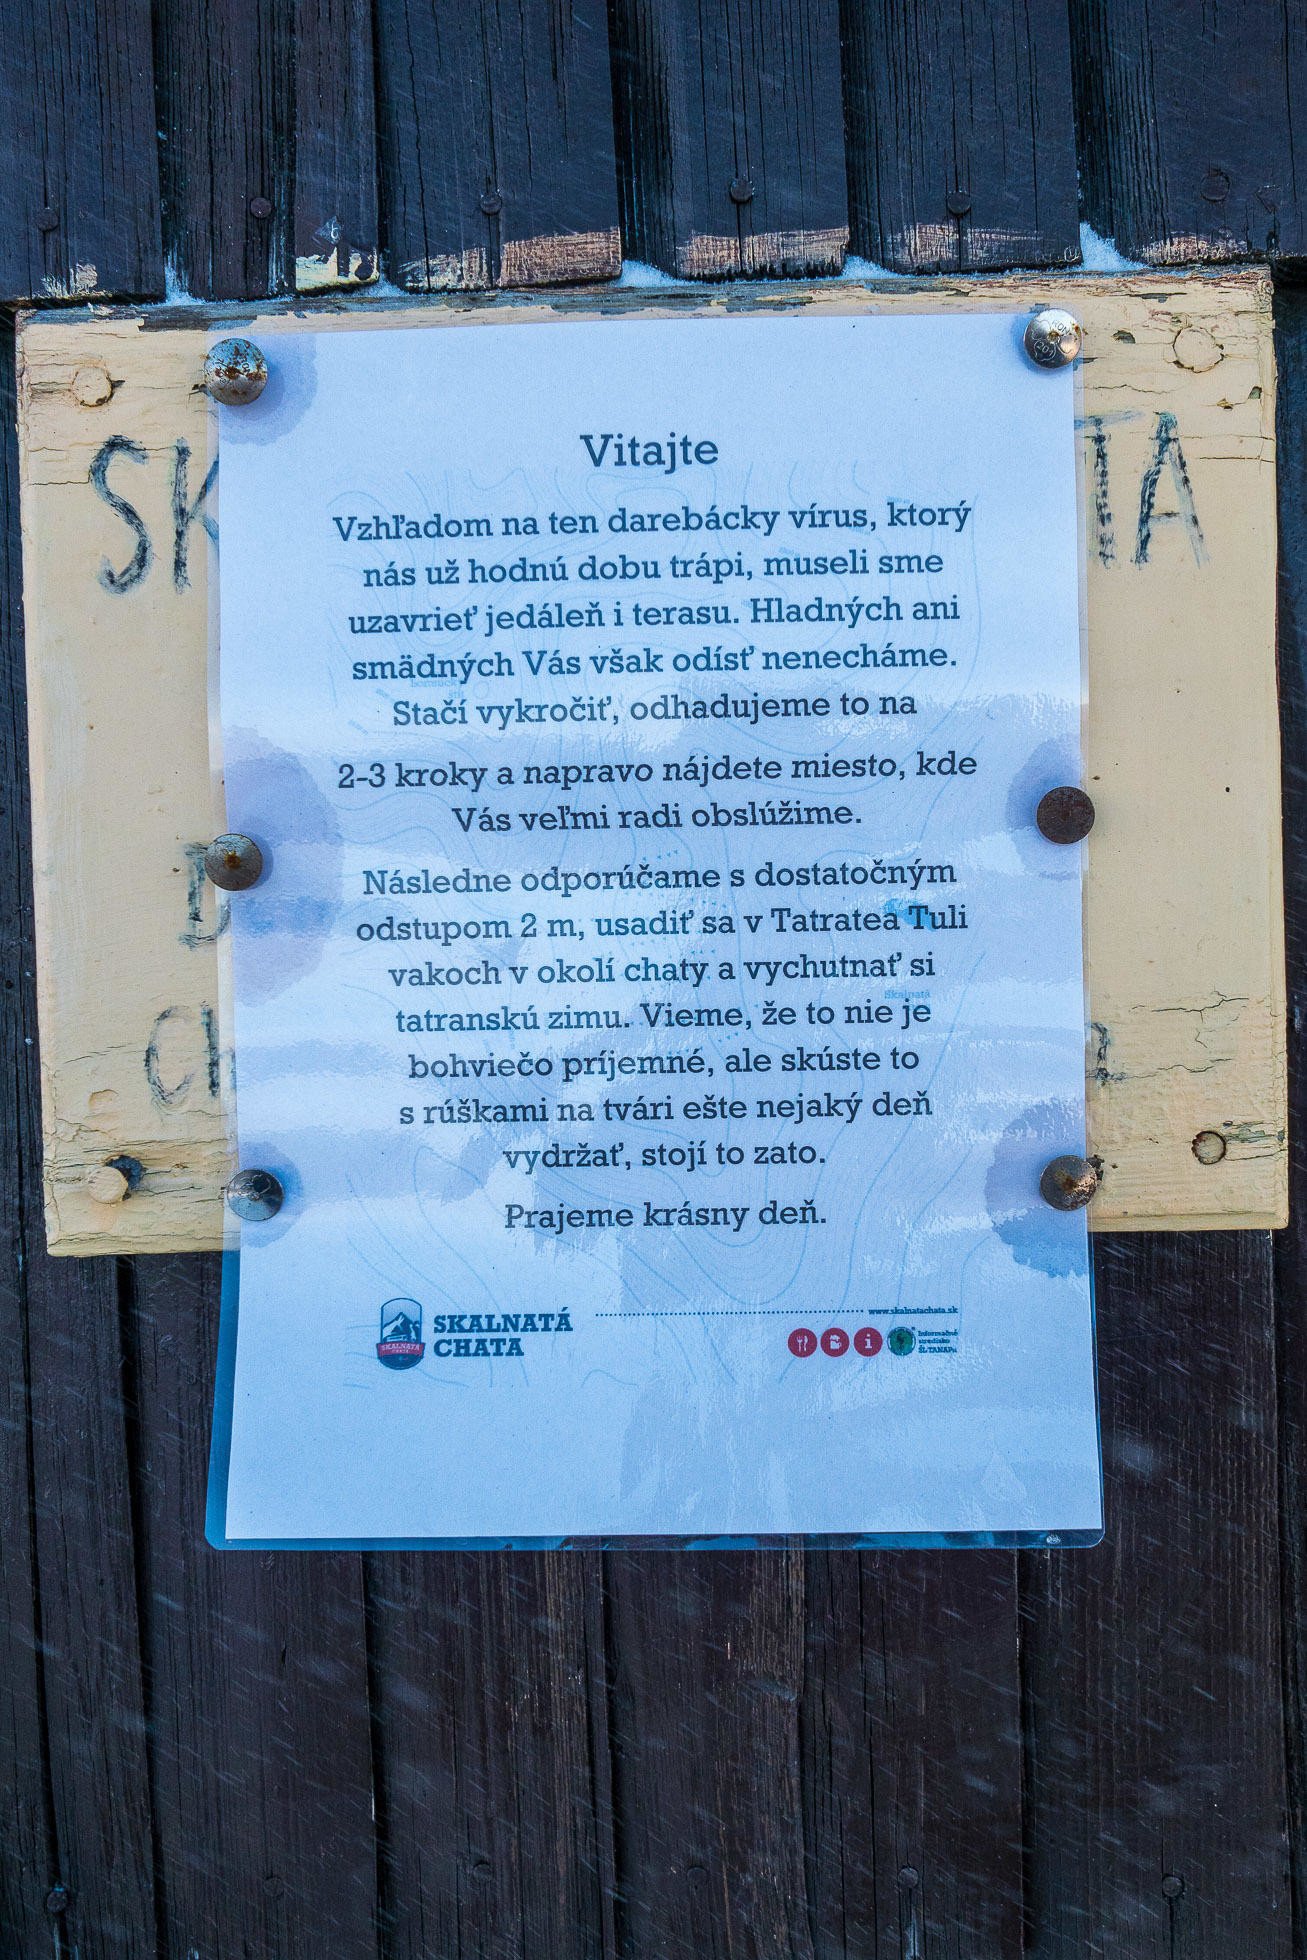 SK
TA
Vitajte
Vzhľadom na ten darebácky vírus, ktorý
nás už hodnú dobu trápi, museli sme
uzavrieť jedáleň i terasu. Hladných ani
smädných Vás však odísť nenecháme.
Stačí vykročiť, odhadujeme to na
2-3 kroky a napravo nájdete miesto, kde
Vás veľmi radi obslúžime.
Následne odporúčame s dostatočným
odstupom 2 m, usadiť sa v Tatratea Tuli
vakoch v okolí chaty a vychutnať si
tatranskú zimu. Vieme, že to nie je
bohviečo príjemné, ale skúste to
s rúškami na tvári ešte nejaký deň
vydržať, stojí to zato.
Prajeme krásny deň.
SKALNATÁ
CHATA
www.skalnatachata.sk
Informačné
stredisko
ŠL TANAPu